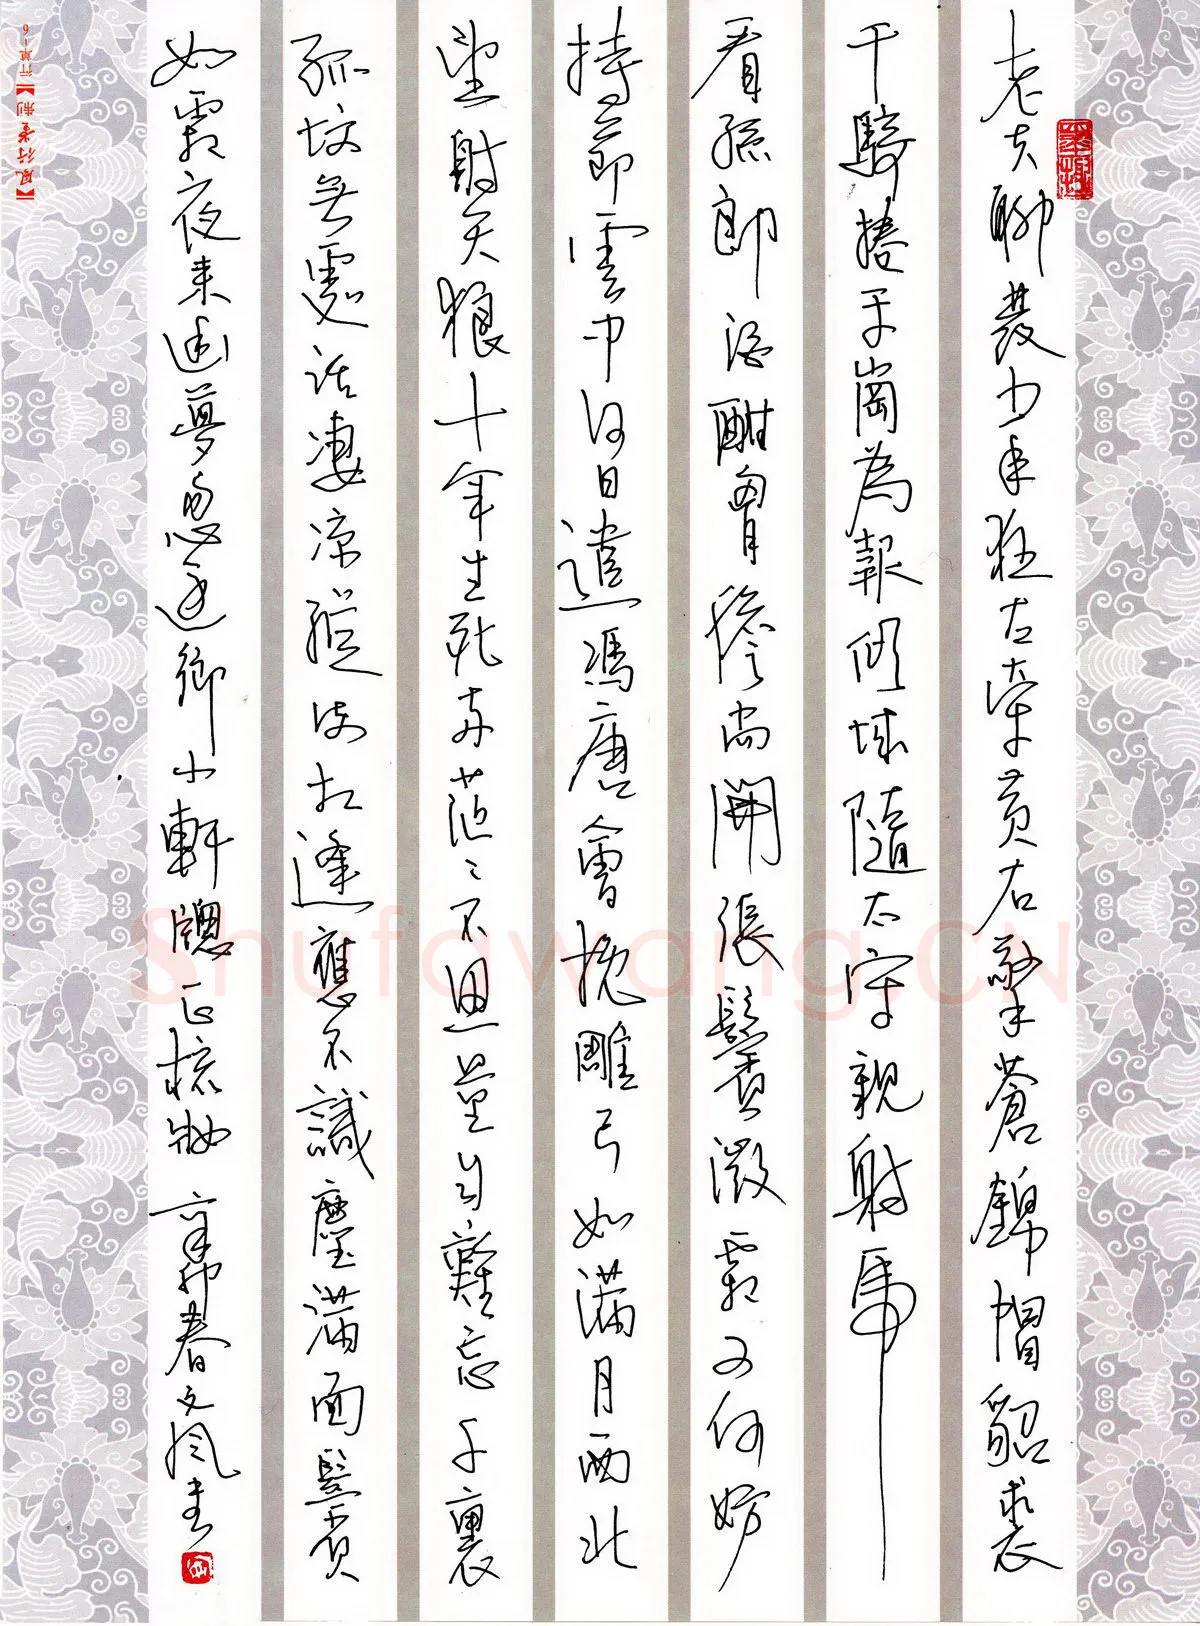 老夫聊發少年狂左牽黃右擎蒼錦帽貂裘
千騎捲平崗為報傾城隨太守親射虎
看孫郎酒酣胸膽尚開張鬢微霜又何妨
持節雲中何日遣馮唐會挽雕弓如滿月西北
望射天狼十年生死兩茫〻不思量自難忘千裏
孤墳無處話凄凉縱使相逢應不識塵滿面鬢
如霜夜來幽夢忽還鄉小軒窗正梳妝 辛卯春文風書
Shufawang.CN